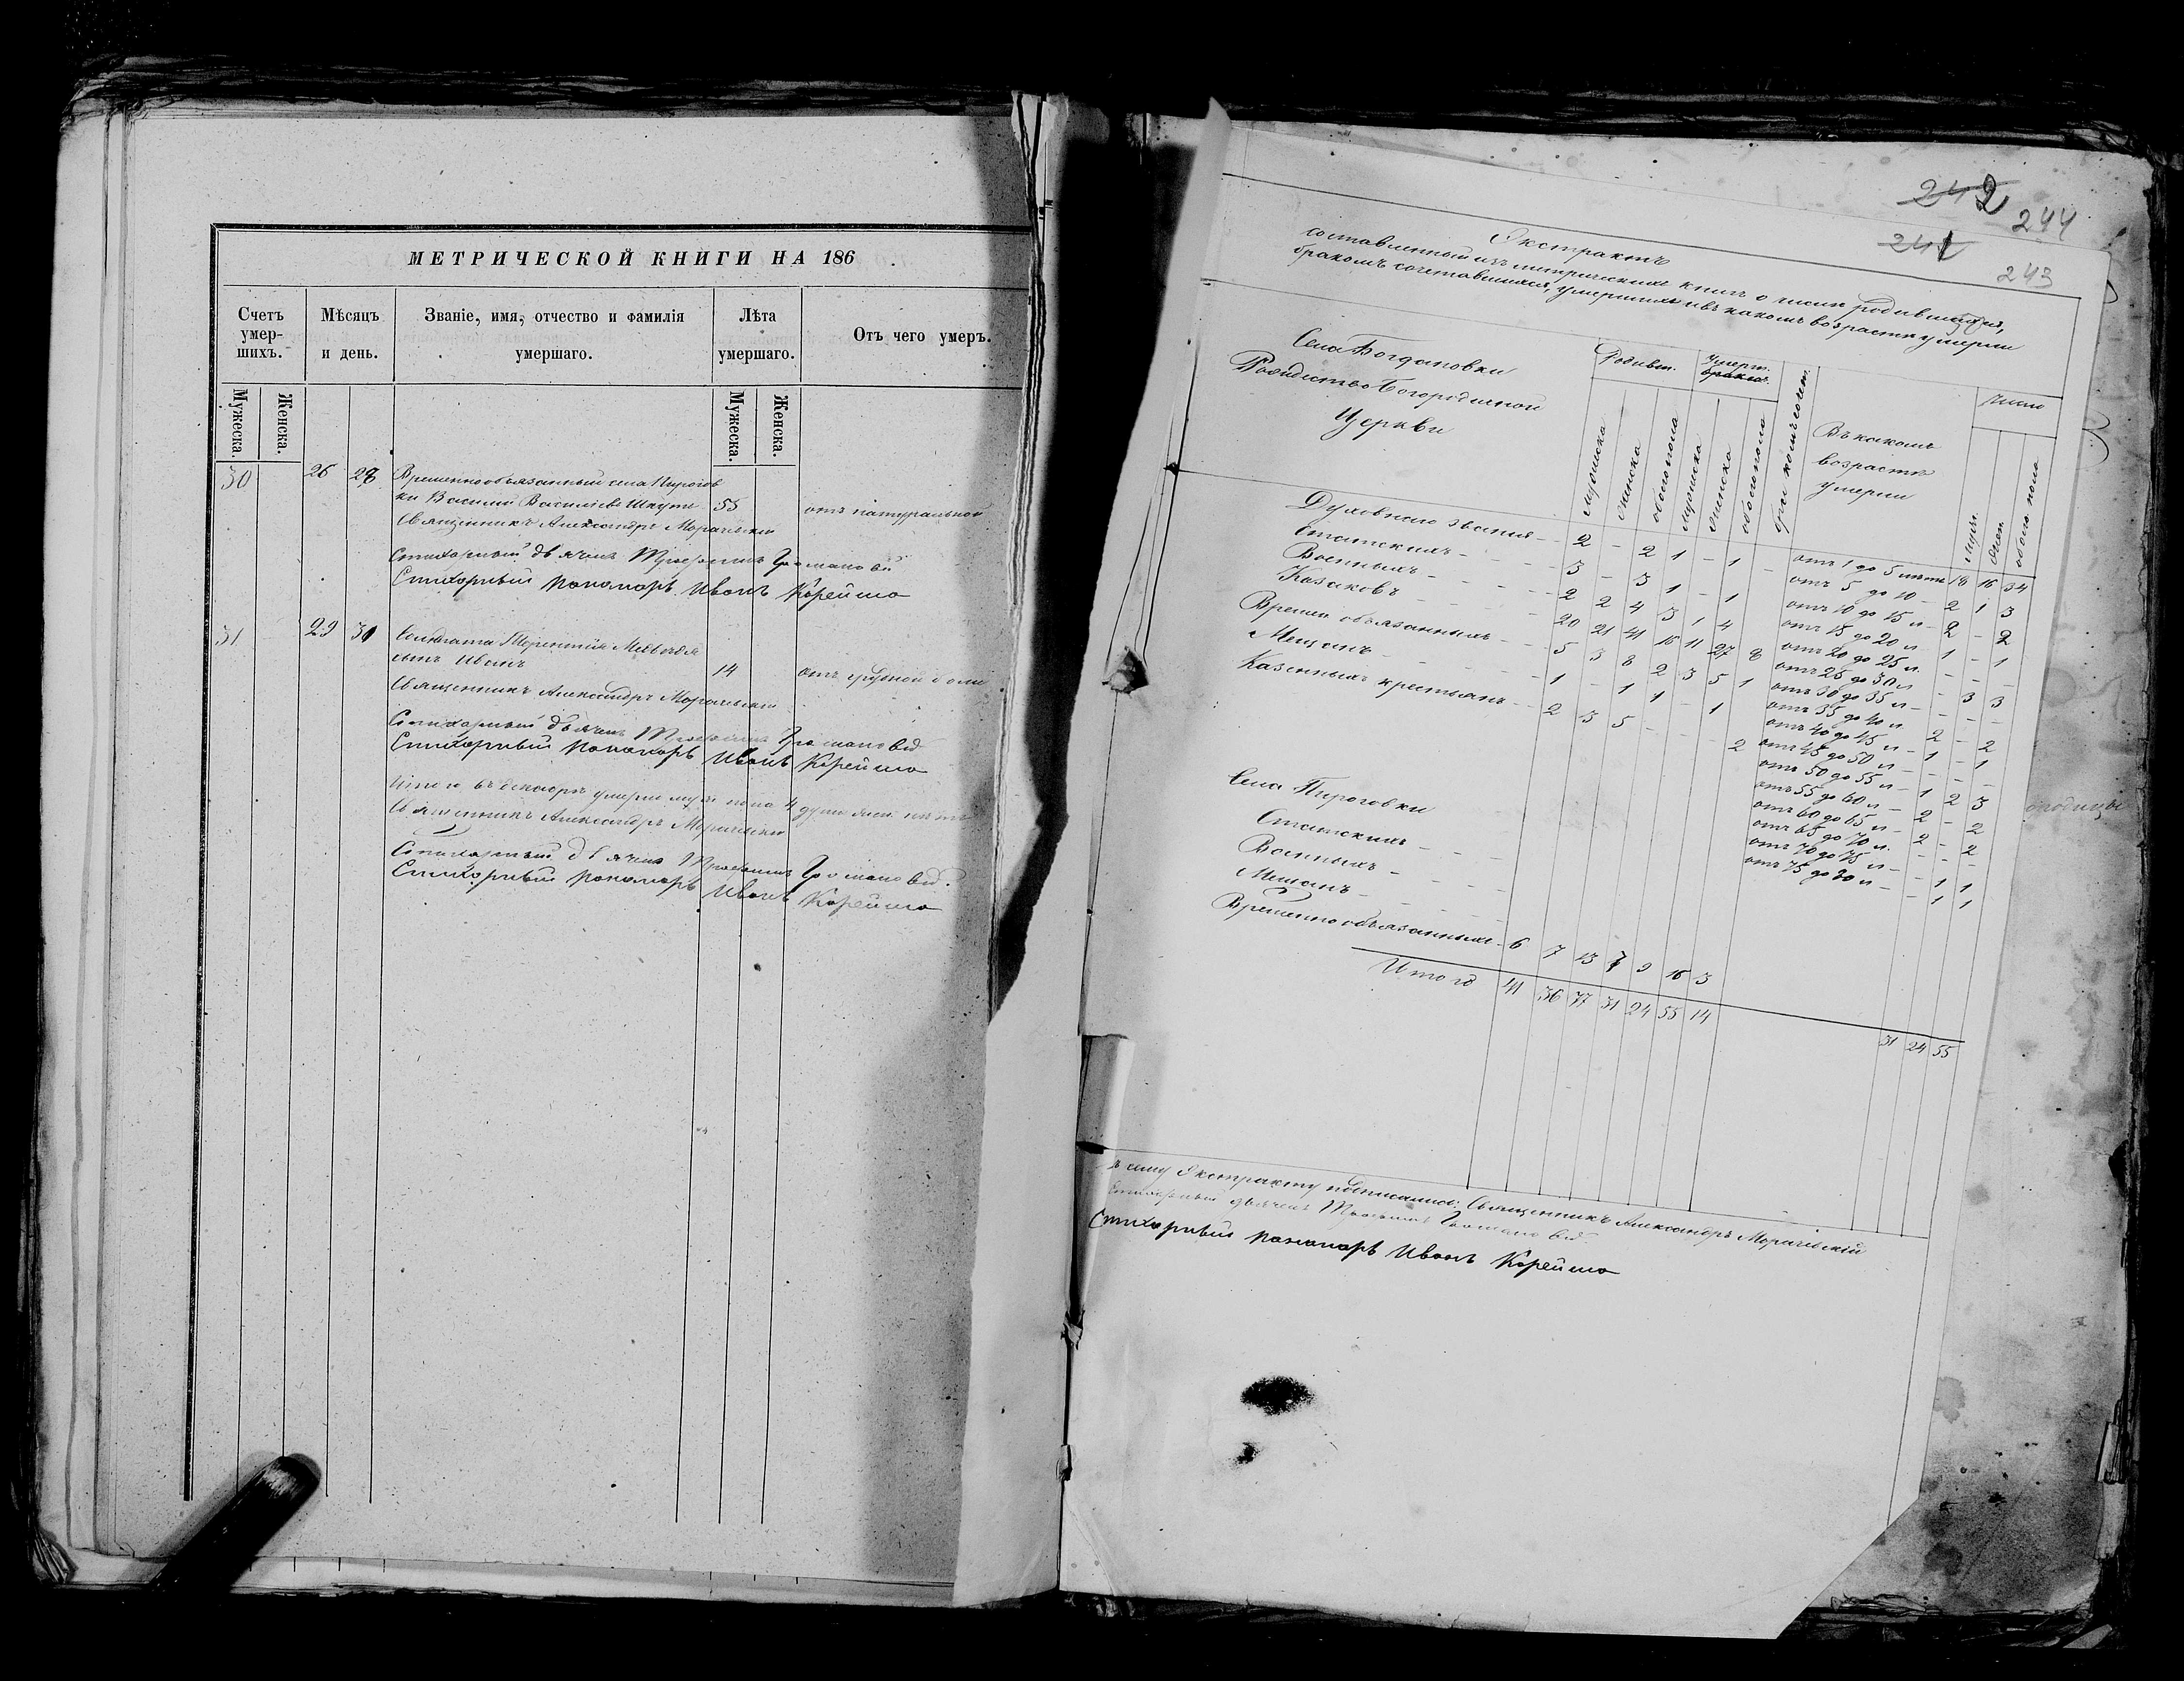 МЕТРИЧЕСКОЙ КНИГИ НА 186 .
Счетъ умер-шихъ.
Мѣсяцъ и день.
Званіе, имя, отчество и фамилія умершаго.
Лѣта умершаго.
Отъ чего умеръ.
Мужеска.
Женска.
Мужеска.
Женска.
30 26 28 Временнообязанный села Пирогов
ки Василій Васильевъ 55 отъ натуральной
Священникъ Александръ Морачевскій
Стихарный дьячекъ
Стихарный пономарь Иванъ Корейша
31 29 30 Солдата
сынъ Иванъ 14 отъ грудной боли
Священникъ Александръ Морачевскій
Стихарный дьячекъ
Стихарный пономарь Иванъ Корейша
Итого въ декабрѣ умерло муж. пола 4 души жен. нѣтъ
Священникъ Александръ Морачевскій
Стихарный дьячекъ
Стихарный пономарь Иванъ Корейша
242 244
241 243
Экстрактъ
составленный изъ метрическихъ книгъ о числѣ родившихся,
бракомъ сочетавшихся, умершихъ и въ какомъ возрастѣ умерли
Села Богдановки
Рождество Богородичной
Церкви
Родивш.
Умерш.
Число
мужеска
женска
обоего пола
мужеска
женска
обоего пола
Въ какомъ
возрастѣ
умерли
муж.
жен.
обоего пола
Духовнаго званія - 2 - 2 1 - 1 -
Статскихъ - 3 - 3 1 - 1
Военныхъ - 2 2 4 3 1 4
Казаковъ - 20 21 41 16 11 27 8
Времен. обязанныхъ - 5 3 8 2 3 5 1
Мещанъ - 1 - 1 1 - 1
Казенныхъ крестьянъ - 2 3 5 - - - 2
отъ 1 до 5 лѣтъ 18 16 34
отъ 5 до 10 - 2 1 3
отъ 10 до 15 л - 2 - 2
отъ 15 до 20 л 1 - 1
отъ 20 до 25 л. - - -
отъ 25 до 30 л - 3 3
отъ 30 до 35 л - - - -
отъ 35 до 40 л 2 - 2
отъ 40 до 45 л - 1 - 1
отъ 45 до 50 л - - - -
отъ 50 до 55 л - 1 2 3
отъ 55 до 60 л - 2 - 2
отъ 60 до 65 л - 2 - 2
отъ 65 до 70 л. - - -
отъ 70 до 75 л - - 1 1
отъ 75 до 80 л - - 1 1
Села Пироговки
Статскихъ - - -
Военныхъ - - -
Мещанъ - - -
Временнообязанныхъ - 6 7 13 7 9 16 3
Итого 41 36 77 31 24 55 14
31 24 55
сему экстракту подписались: Священникъ Александръ Морачевскій
Стихарный дьячекъ
Стихарный пономарь Иванъ Корейша